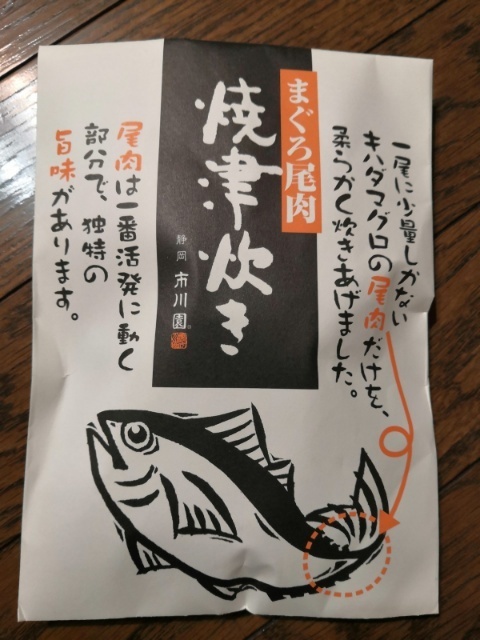 一尾に少量しかない
キハダマグロの尾肉だけを、
柔らかく炊きあげました。
まぐろ尾肉
焼津炊き
静岡 市川園
尾肉は一番活発に動く
部分で、独特の
旨味があります。